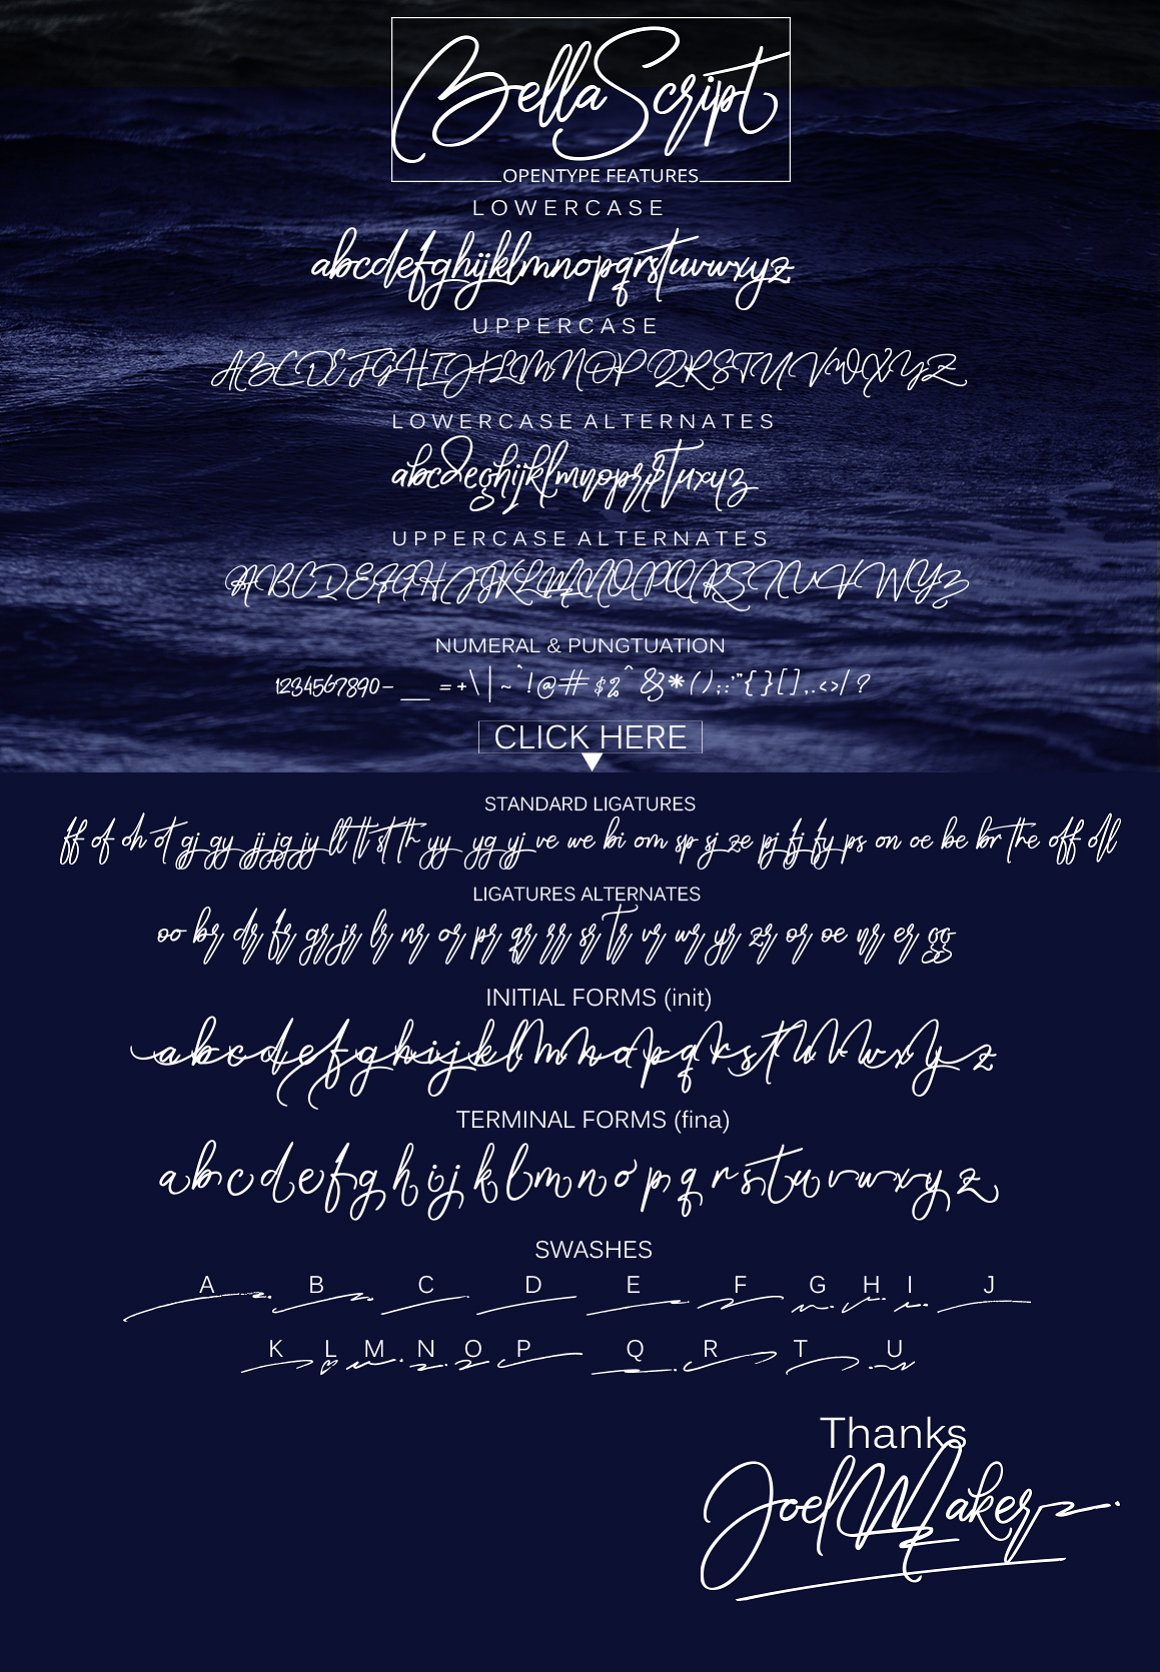 BellaScript
OPENTYPE FEATURES
LOWERCASE
abcdefghijklmnopqrstuvwxyz
UPPERCASE
ABCDEFGHIJKLMNOPQRSTUVWXYZ
LOWERCASE ALTERNATES
abcdeghijklmnoprstuxyz
UPPERCASE ALTERNATES
NUMERAL & PUNGTUATION
1234567890- __ =+\|~`!@#$%^&*();:'"{}[],.<>/?
CLICK HERE
STANDARD LIGATURES
ff of oh ot gj gy jj jg jy ll tt st th yy yg yj ve we bi om sp sj ze pj fj fy ps on oe be br the off oll
LIGATURES ALTERNATES
oo br dr fr gr jr lr nr or pr qr rr sr tr vr wr yr zr or oe nr er gg
INITIAL FORMS (init)
abcdefghijklmnopqrstuvwxyz
TERMINAL FORMS (fina)
abcdefghijklmnopqrstuvwxyz
SWASHES
A B C D E F G H I J
K L M N O P Q R T U
Thanks
JoelMaker